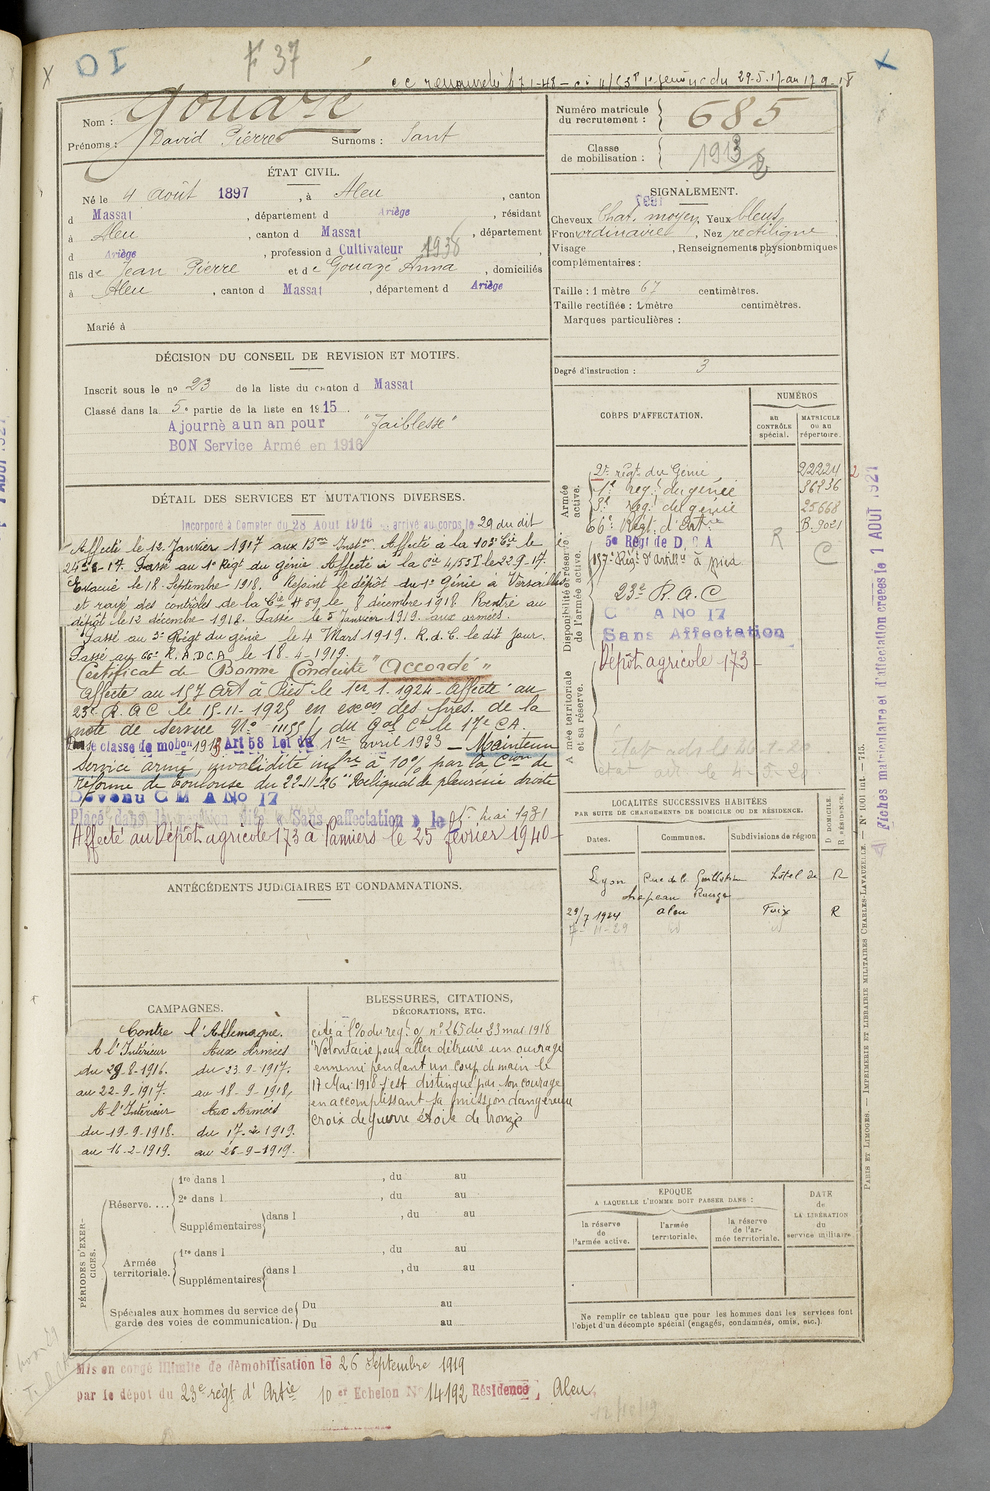 DI
F 37
Nom : Gouazé
Prénoms : David Pierre Surnoms : Sant
Numéro matricule du recrutement : 685
Classe de mobilisation : 1913
ÉTAT CIVIL.
Né le 4 août 1897, à Aleu, canton
d Massat, département d Ariège, résidant
à Aleu, canton d Massat, département
d Ariège, profession d Cultivateur 1938
fils de Jean Pierre et de Gouazé Anna, domiciliés
à Aleu, canton d Massat, département d Ariège
Marié à
SIGNALEMENT.
1897
Cheveux Chat. moyen, Yeux bleus
Front ordinaire, Nez rectiligne
Visage , Renseignements physionomiques
complémentaires :
Taille : 1 mètre 67 centimètres.
Taille rectifiée : 1 mètre centimètres.
Marques particulières :
Degré d'instruction : 3
DÉCISION DU CONSEIL DE REVISION ET MOTIFS.
Inscrit sous le n° 23 de la liste du canton d Massat
Classé dans la 5e partie de la liste en 1915.
Ajourné aun an pour "Faiblesse"
BON Service Armé en 1916
DÉTAIL DES SERVICES ET MUTATIONS DIVERSES.
Incorporé à Compter du 28 Août 1916 arrivé au corps le 29 du dit
Affecté le 12 Janvier 1917 aux Bon Inston. Affecté à la 103e Cie le
24-8-17. Passé au 1er Régt du génie. Affecté à la Cie 4/53T le 22-9-17.
Evacué le 18 Septembre 1918. Rejoint le dépôt du 1er Génie à Versailles
et rayé des contrôles de la Cie 4/59 le 8 décembre 1918. Rentré au
dépôt le 13 décembre 1918. Passé le 5 Janvier 1919 aux armées.
Passé au 3e Régt du génie le 4 Mars 1919. R. d. C. le dit jour.
Passé au 66e R.A.D.C.A le 18-4-1919.
Certificat de Bonne Conduite "Accordé"
Affecté au 157 Art à Pied le 1er 1. 1924 - Affecté au
23e R.A.C le 15-11-1925 en exon des pres. de la
note de service N° 1115/1 du Gal Ct le 17e C.A.
Passé classe de mobon 1913 Art 58 Loi du 1er avril 1923 — Maintenu
Service armé, invalidité infre à 10% par la Cion de
réforme de Toulouse du 22-11-26 "Reliquat de pleurésie droite
Devenu C M A No 17
Placé dans la position dite « Sans affectation » le 1er mai 1931
Affecté au Dépôt agricole 173 à Pamiers le 25 février 1940
CORPS D'AFFECTATION.
NUMÉROS
au CONTRÔLE spécial.
MATRICULE ou au répertoire.
Armée active.
2e régt. du Génie 22224
1er régt. du génie 36736
3e régt. du génie 25668
66e Régt. d'Artie B.9021
Disponibilité et réserve de l'armée active.
5e Régt de D.C A
157e Régt d'artillie à pied R C
23e R.A.C
C M A No 17
Sans Affectation
Dépôt agricole 173
Armée territoriale et sa réserve.
LOCALITÉS SUCCESSIVES HABITÉES
PAR SUITE DE CHANGEMENTS DE DOMICILE OU DE RÉSIDENCE.
Dates. Communes. Subdivisions de région. D DOMICILE. R RÉSIDENCE.
Lyon Rue de la Guillotière hôtel du R
chapeau Rouge
29/7 1924 Aleu Foix R
ANTÉCÉDENTS JUDICIAIRES ET CONDAMNATIONS.
CAMPAGNES.
Contre l'Allemagne.
A l'Intérieur Aux Armées
du 29-8-1916. du 23-9-1917.
au 22-9-1917. au 18-9-1918,
A l'Intérieur Aux Armées
du 19-9-1918. du 17-2-1919.
au 16-2-1919. au 26-9-1919.
BLESSURES, CITATIONS,
DÉCORATIONS, ETC.
cité à l'O/ du regt o/ n° 265 du 23 mai 1918
"Volontaire pour aller détruire un ouvrage
ennemi pendant un coup de main le
17 Mai 1918 s'est distingué par son courage
en accomplissant sa mission dangereuse
croix de guerre étoile de bronze
PÉRIODES D'EXERCICES.
Réserve....
1re dans l , du au
2e dans l , du au
Supplémentaires dans l , du au
Armée territoriale.
1re dans l , du au
Supplémentaires dans l , du au
Spéciales aux hommes du service de garde des voies de communication.
Du au
Du au
ÉPOQUE
A LAQUELLE L'HOMME DOIT PASSER DANS :
la réserve de l'armée active.
l'armée territoriale.
la réserve de l'armée territoriale.
DATE de LA LIBÉRATION du service militaire.
Ne remplir ce tableau que pour les hommes dont les services font
l'objet d'un décompte spécial (engagés, condamnés, omis, etc.).
Mis en congé illimité de démobilisation le 26 Septembre 1919
par le dépôt du 23e régt d'Artie 10 er Echelon N° 14192 Résidence Aleu,
Fiches matriculaire et d'affectation créées le 1 AOUT 1927
PARIS ET LIMOGES. — IMPRIMERIE ET LIBRAIRIE MILITAIRES CHARLES-LAVAUZELLE. — N° 1001 int. — 715.